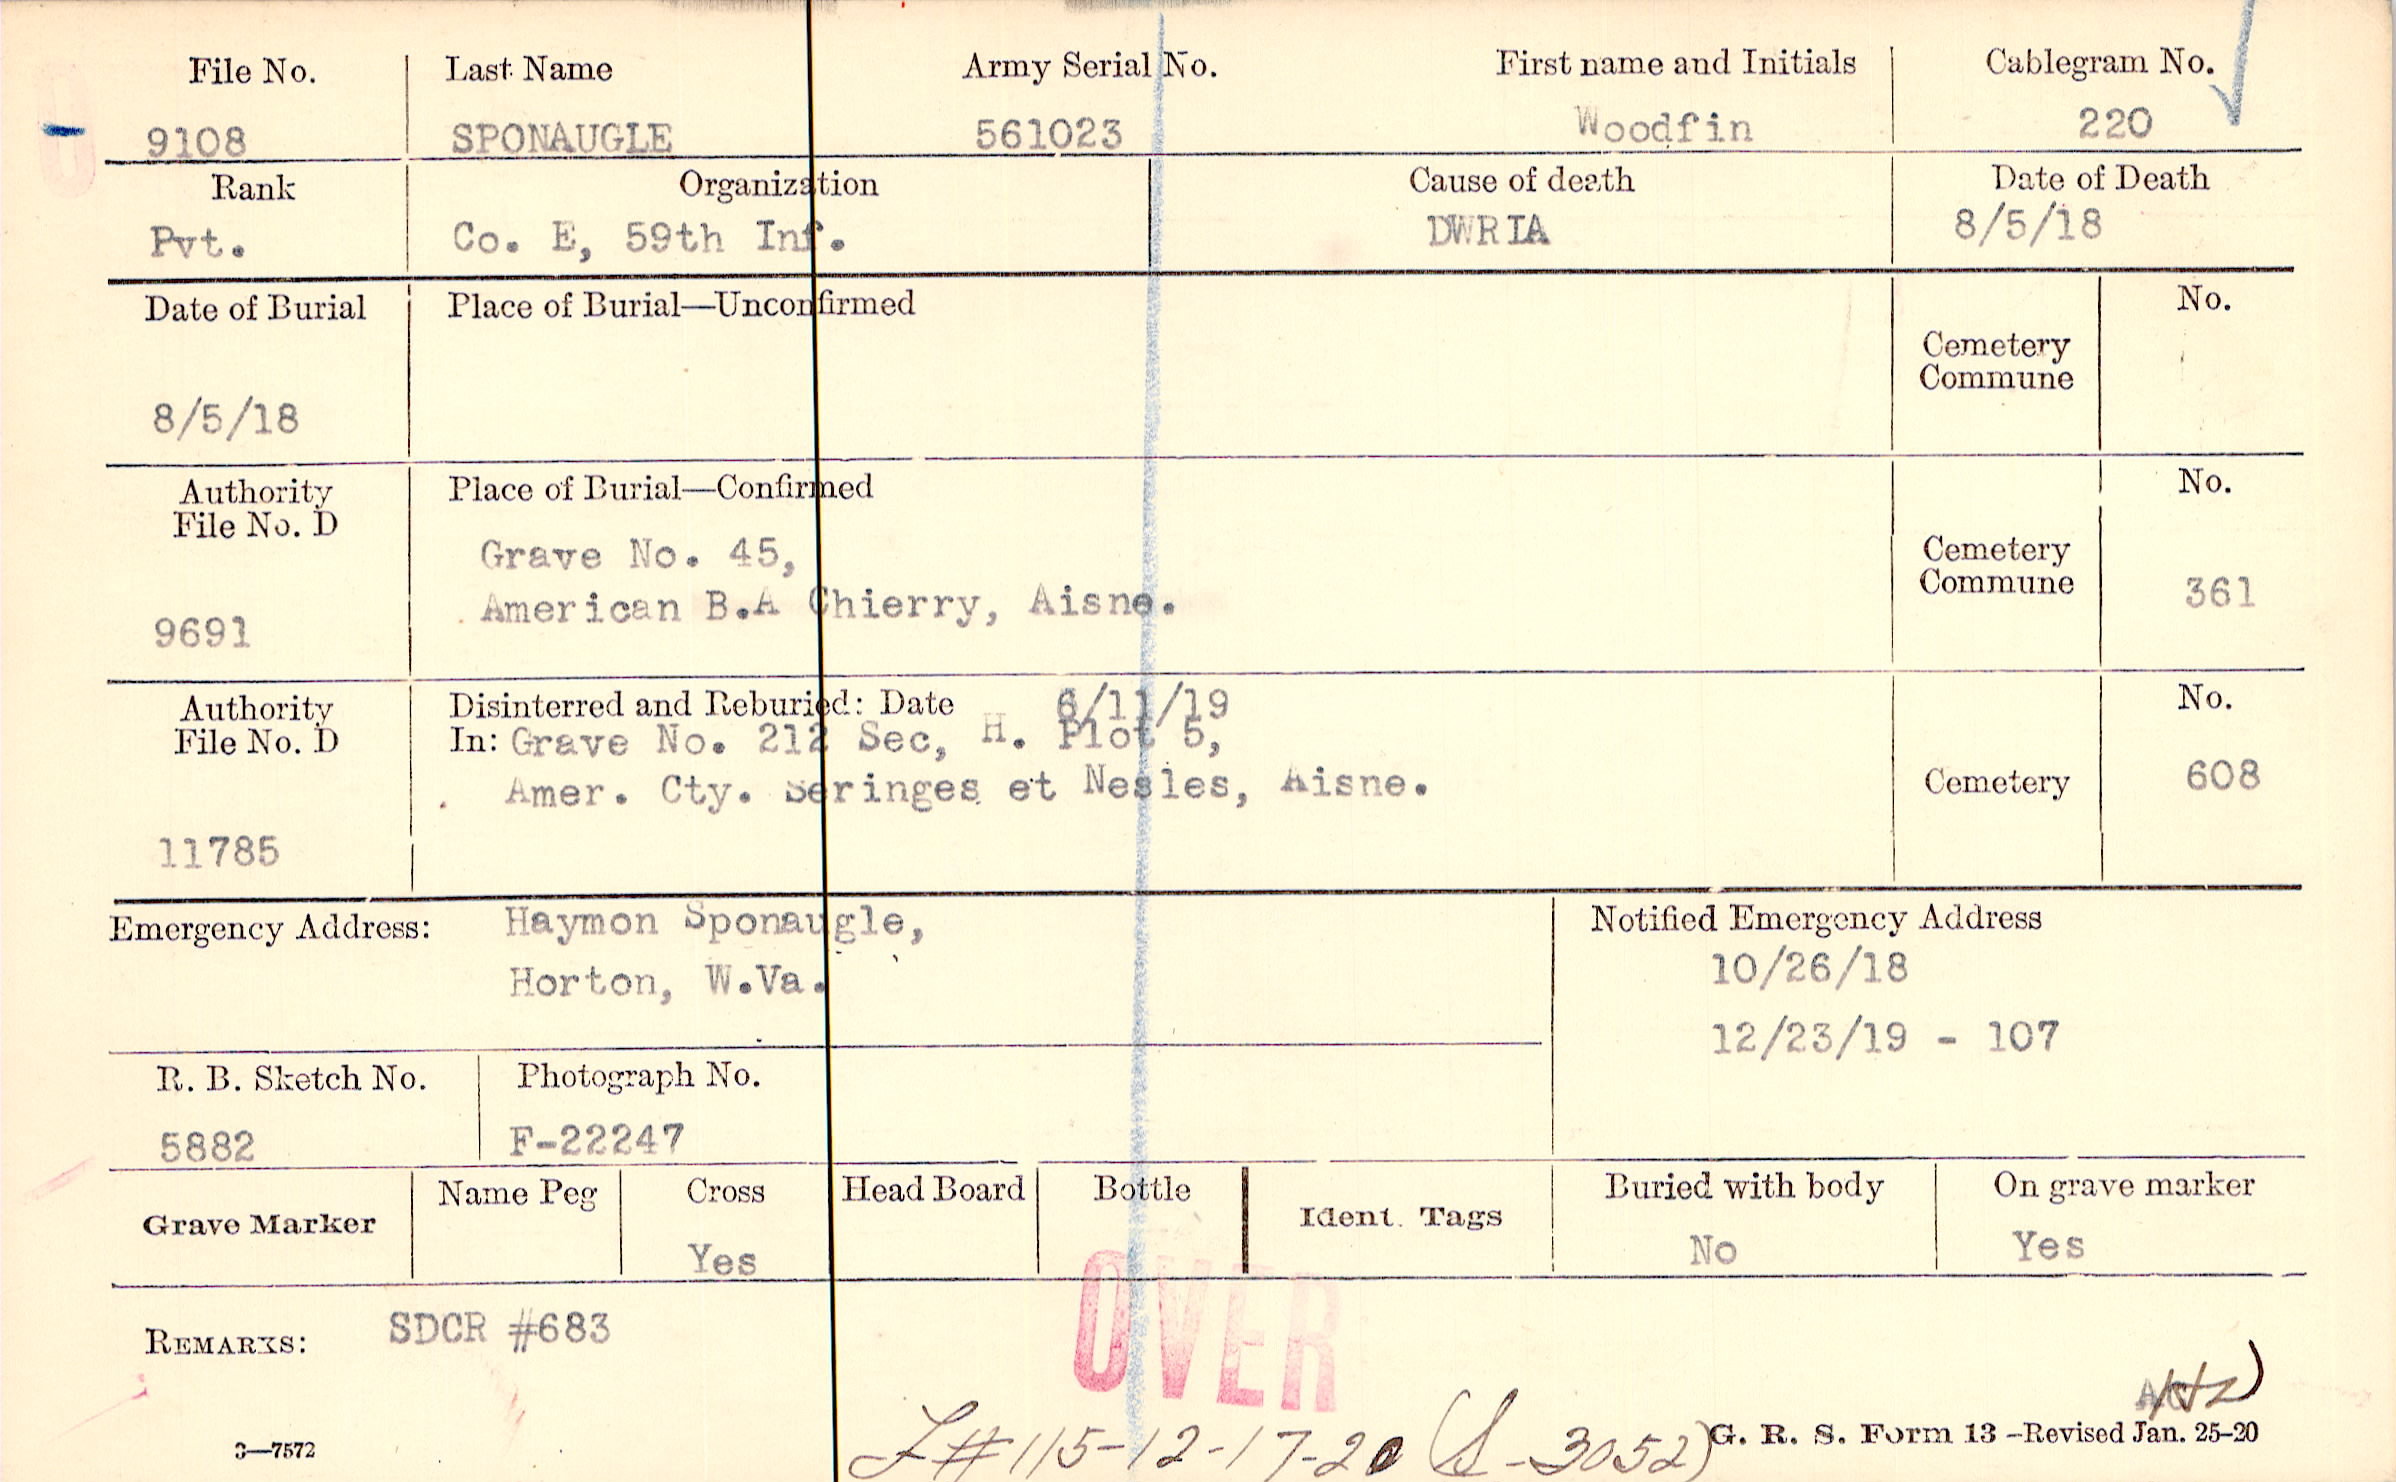 File No. Last Name Army Serial No. First name and Initials Cablegram No.
9108 SPONAUGLE 561023 Woodfin 220
Rank Organization Cause of death Date of Death
Pvt. Co. E, 59th Inf. DWRIA 8/5/18
Date of Burial Place of Burial—Unconfirmed No.
Cemetery
Commune
8/5/18
Authority Place of Burial—Confirmed No.
File No. D
Grave No. 45,
Cemetery
Commune 361
American B.A Chierry, Aisne.
9691
Authority Disinterred and Reburied: Date 6/11/19 No.
File No. D In: Grave No. 212 Sec, H. Plot 5,
Amer. Cty. Seringes et Nesles, Aisne. Cemetery 608
11785
Emergency Address: Haymon Sponaugle, Notified Emergency Address
Horton, W.Va. 10/26/18
12/23/19 - 107
R. B. Sketch No. Photograph No.
5882 F-22247
Grave Marker Name Peg Cross Head Board Bottle Ident. Tags Buried with body On grave marker
Yes No Yes
OVER
REMARKS: SDCR #683
3—7572 #115-12-17-20 (S-3052) G. R. S. Form 13 –Revised Jan. 25–20